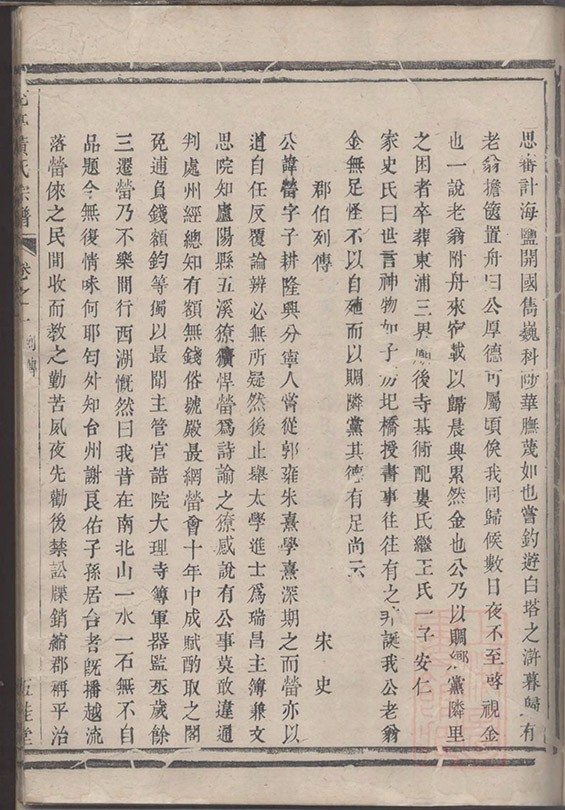 思審計海鹽開國雋巍科陟華膴蔑如也嘗釣遊白塔之滸暮歸有
老翁擔篋置舟曰公厚德可屬頃俟我同歸候數日夜不至啓視金
也一說老翁附舟來宿載以歸晨興累然金也公乃以賙鄉黨隣里
之困者卒葬東浦三界興後寺基術配婁氏繼王氏一子安仁
家史氏曰世言神物如子房圯橋授書事往往有之非誕我公老翁
金無足怪不以自殖而以賙隣黨其德有足尚云
郡伯列傳 宋史
公諱㽦字子耕隆興分寧人嘗從郭雍朱熹學熹深期之而㽦亦以
道自任反覆論辨必無所疑然後止舉太學進士為瑞昌主簿兼文
思院知盧陽縣五溪獠獷悍㽦為詩諭之獠感說有公事莫敢違通
判處州經總知有額無錢俗號殿最綱㽦會十年中成賦酌取之閣
免逋負錢額鈞等獨以最聞主管官誥院大理寺簿軍器監丞歲餘
三遷㽦乃不樂間行西湖慨然曰我昔在南北山一水一石無不自
品題今無復情味何耶匄外知台州謝良佑子孫居台者旣播越流
落㽦倈之民間收而教之勤苦夙夜先勸後禁訟牒銷縮郡稱平治
黃氏宗譜 卷之一 列傳
五桂堂